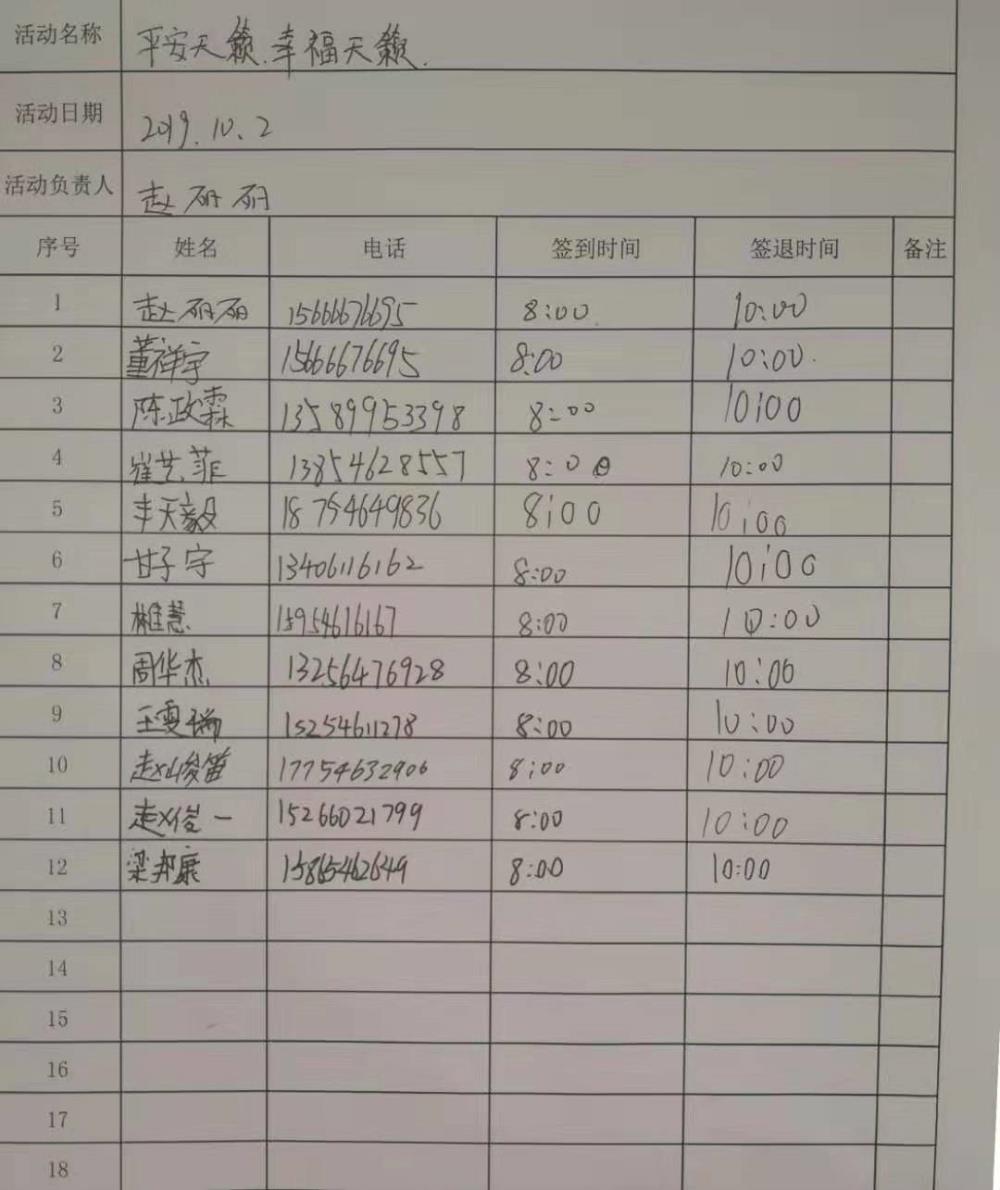 活动名称 平安天籁.幸福天籁.
活动日期 2019.10.2
活动负责人 赵丽丽
序号 姓名 电话 签到时间 签退时间 备注
1 赵丽丽 15666676695 8:00 10:00
2 董祥宇 15666676695 8:00 10:00
3 陈政霖 13589953398 8:00 10:00
4 崔艺菲 13854628557 8:00 10:00
5 丰天毅 18754649836 8:00 10:00
6 甘子宇 13406116162 8:00 10:00
7 15954616167 8:00 10:00
8 周华杰 13256476928 8:00 10:00
9 王雯瑞 15254611278 8:00 10:00
10 赵俊笛 17754632906 8:00 10:00
11 赵俊一 15266021799 8:00 10:00
12 梁邦康 15865462649 8:00 10:00
13
14
15
16
17
18